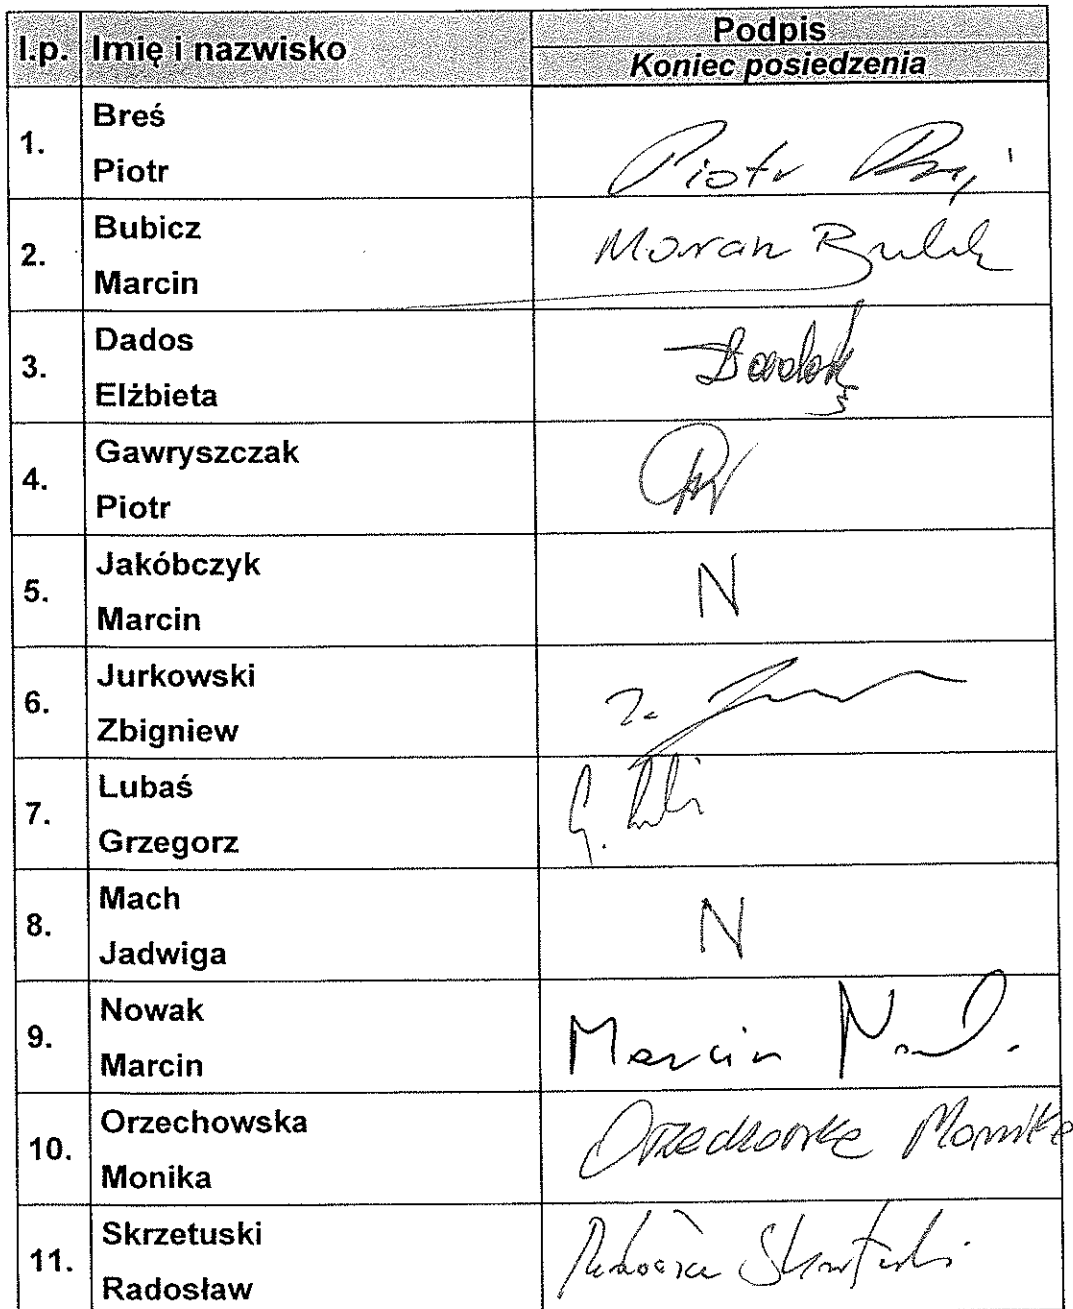 l.p. Imię i nazwisko Podpis
Koniec posiedzenia
1. Breś
Piotr
Piotr
2. Bubicz
Marcin
3. Dados
Elżbieta
4. Gawryszczak
Piotr
5. Jakóbczyk
Marcin
N
6. Jurkowski
Zbigniew
7. Lubaś
Grzegorz
G.
8. Mach
Jadwiga
N
9. Nowak
Marcin
Marcin
10. Orzechowska
Monika
Orzechowska Monika
11. Skrzetuski
Radosław